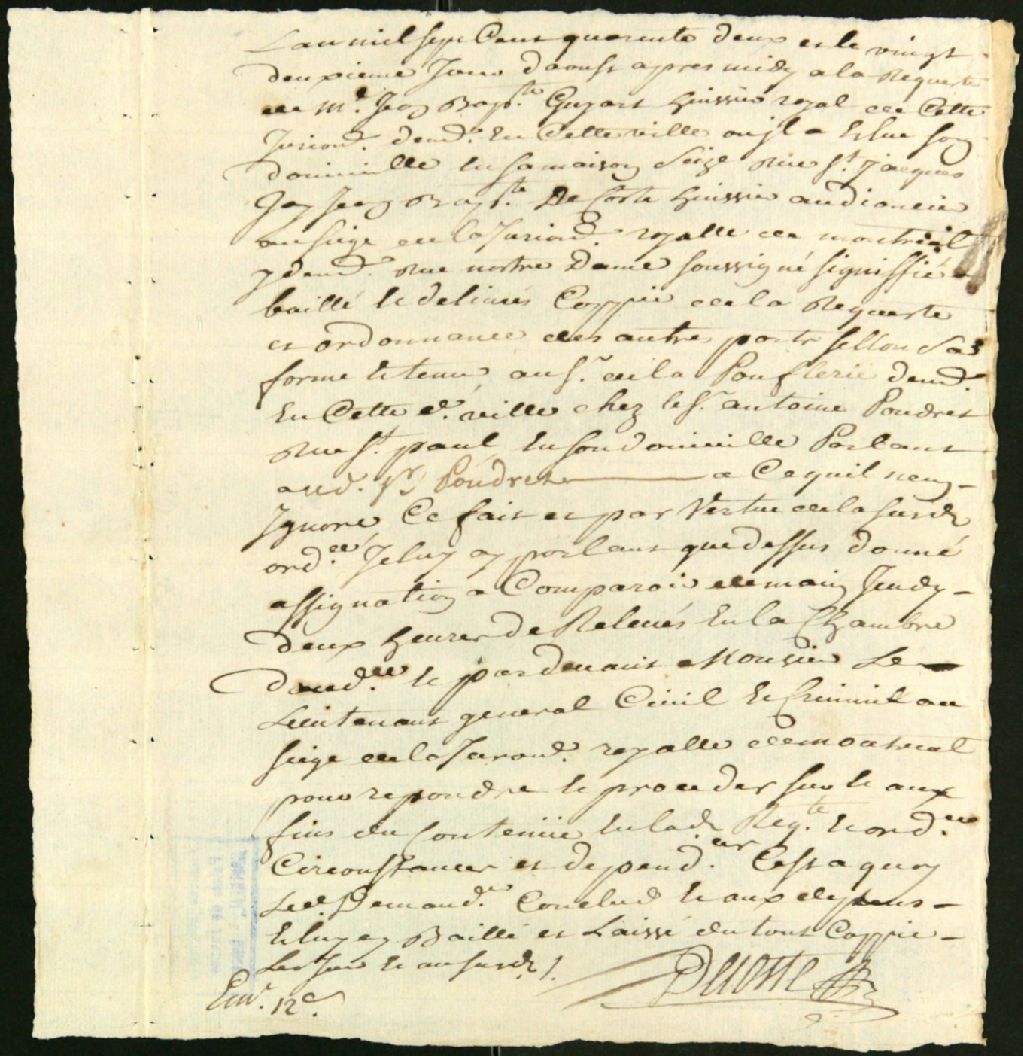 Lan mil Sept Cent quarente deux et le vingt
deuxieme Jour daoust apres midy a la Requeste
de Me. Jean Bapte. Guyart huissier royal de Cette
Juriond. demt. En Cette ville ou jl a Eslue son
domicille En sa maison Seize Rue St. jacques
Jay Jean Bapte. Decoste huissier audiancier
au siege de la Juriond. royalle de montreal
y demt. Rue nostre Dame soussigné signiffié
baillé et delivrés Coppie de la Requeste
et ordonnance des autre parts sellon Sa
forme et teneur au Sr. de la demt.
En Cette de. ville chez le Sr. antoine Poudret
Rue St. paul En son domicille Parlant
aud. Sr. Poudret a Ce quil nen
Jgnore Ce fait et par Vertue de la susde
ordce. Je luy ay parlant que dessus donné
assignation a Comparoir demain Jeudy
deux heures de Relevés En la Chambre
et par devant Monsieur Le
Lieutenant general Civil et Criminel au
siege de la Jurond. royalle de montreal
pour repondre et proceder sur et aux
fins du Contenüe En lad. Reqte. et ordce.
Circonstances et dependces. Cest a quoy
Led. Demandr. Conclud et aux depens
Et luy ay Baillé et Laissé du tout Coppie
Les jour et an susd. /.
Decoste
12